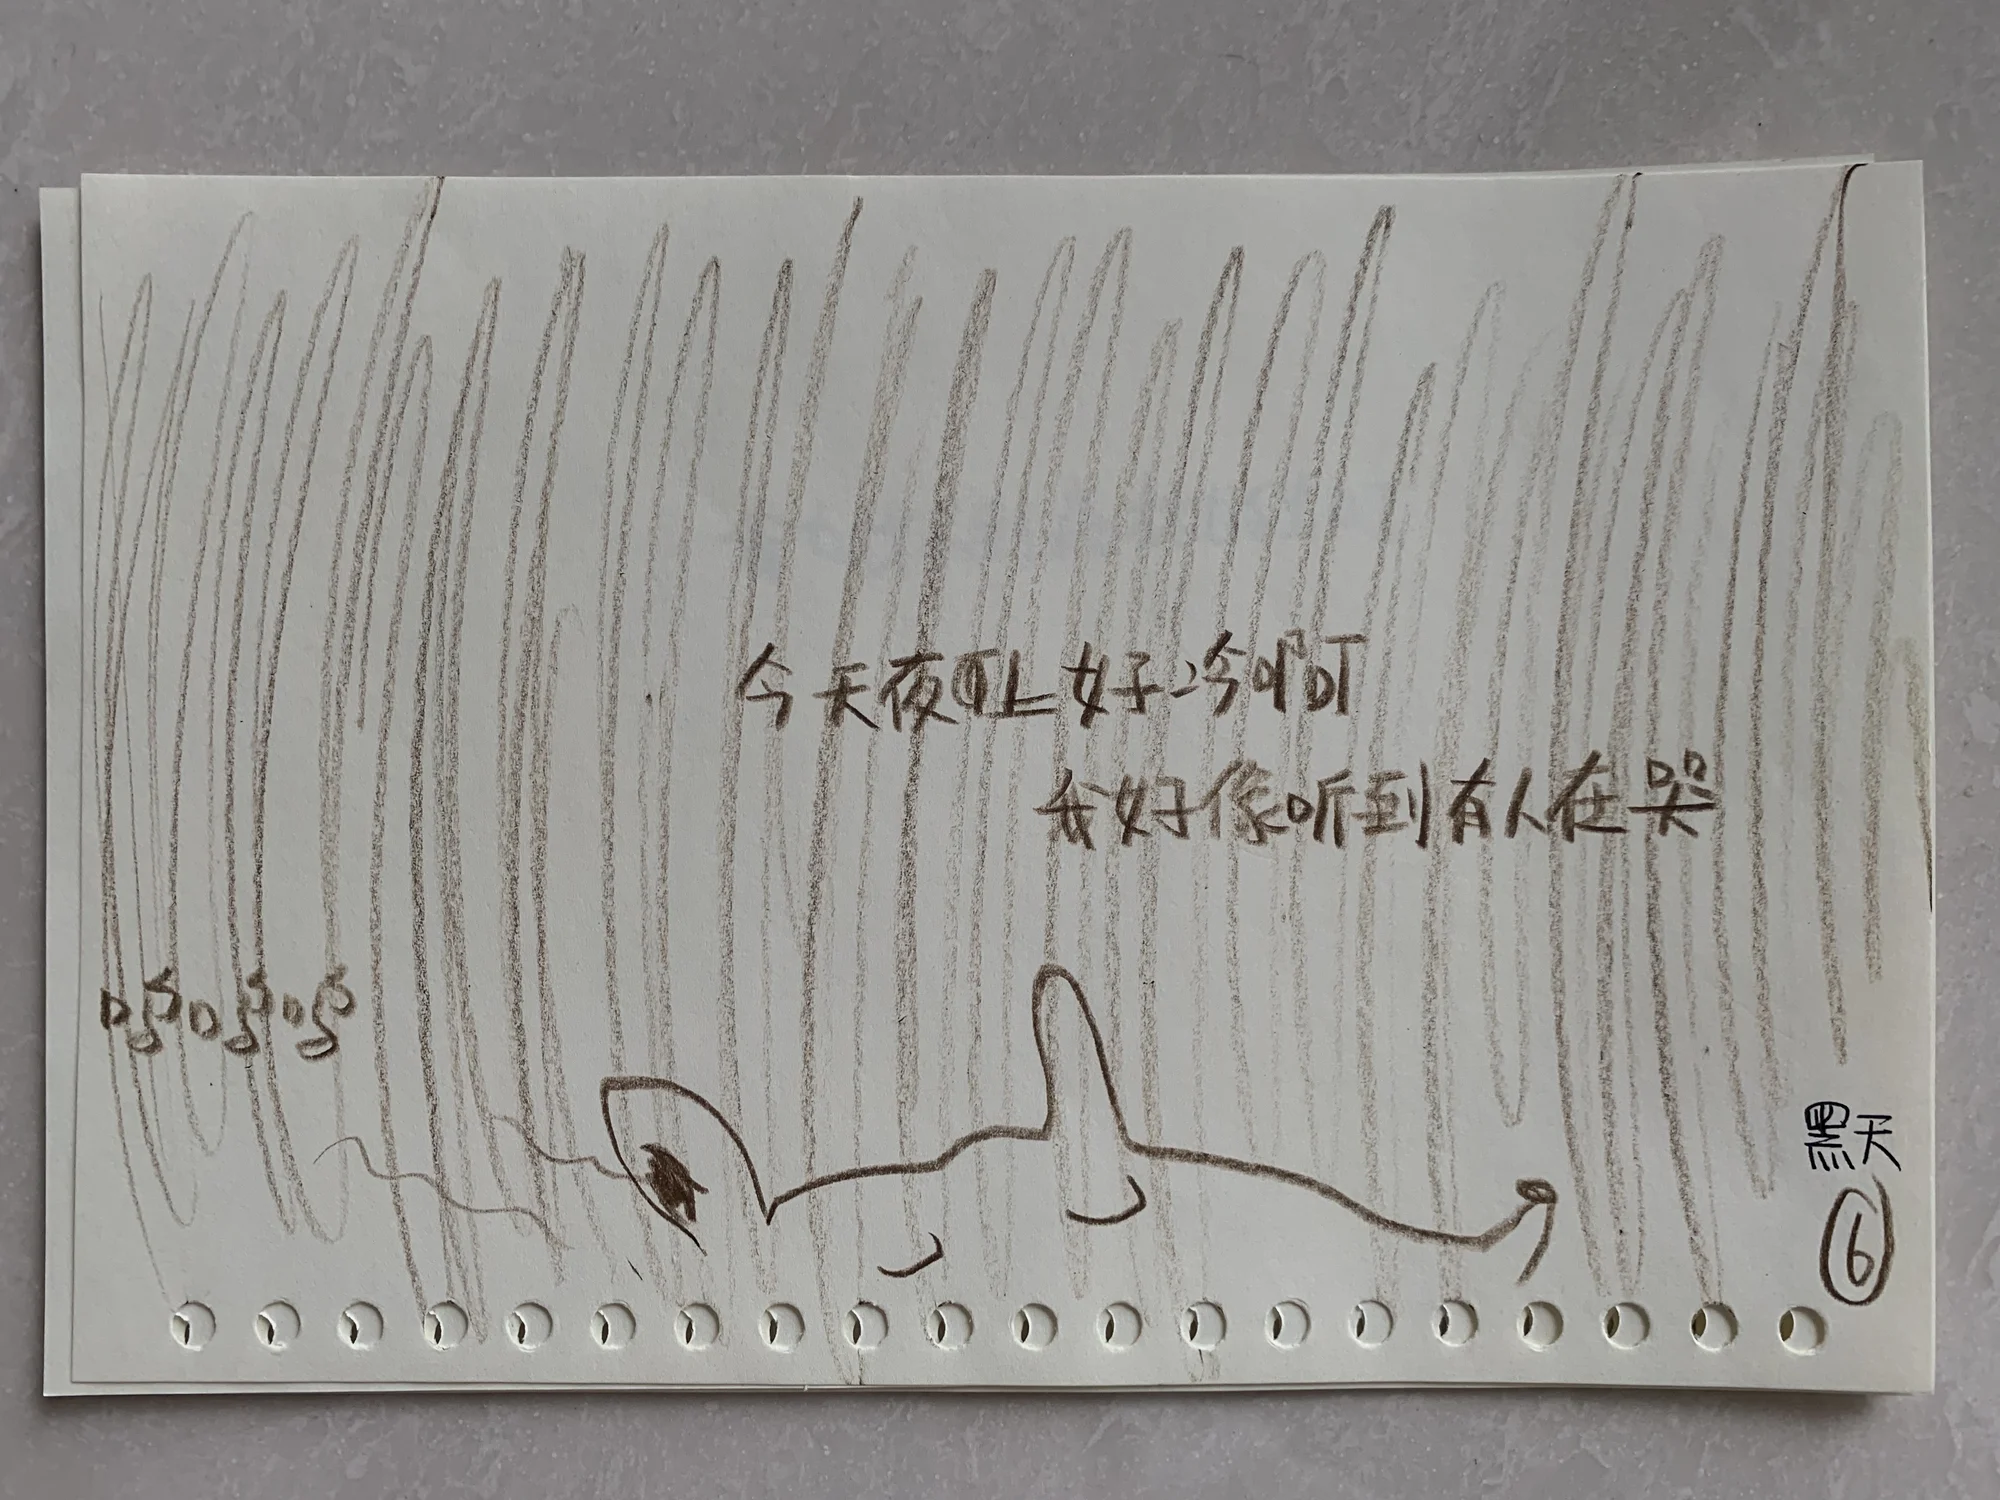 今天夜上好冷啊
我好像听到有人在哭
呜呜呜
黑天
⑥